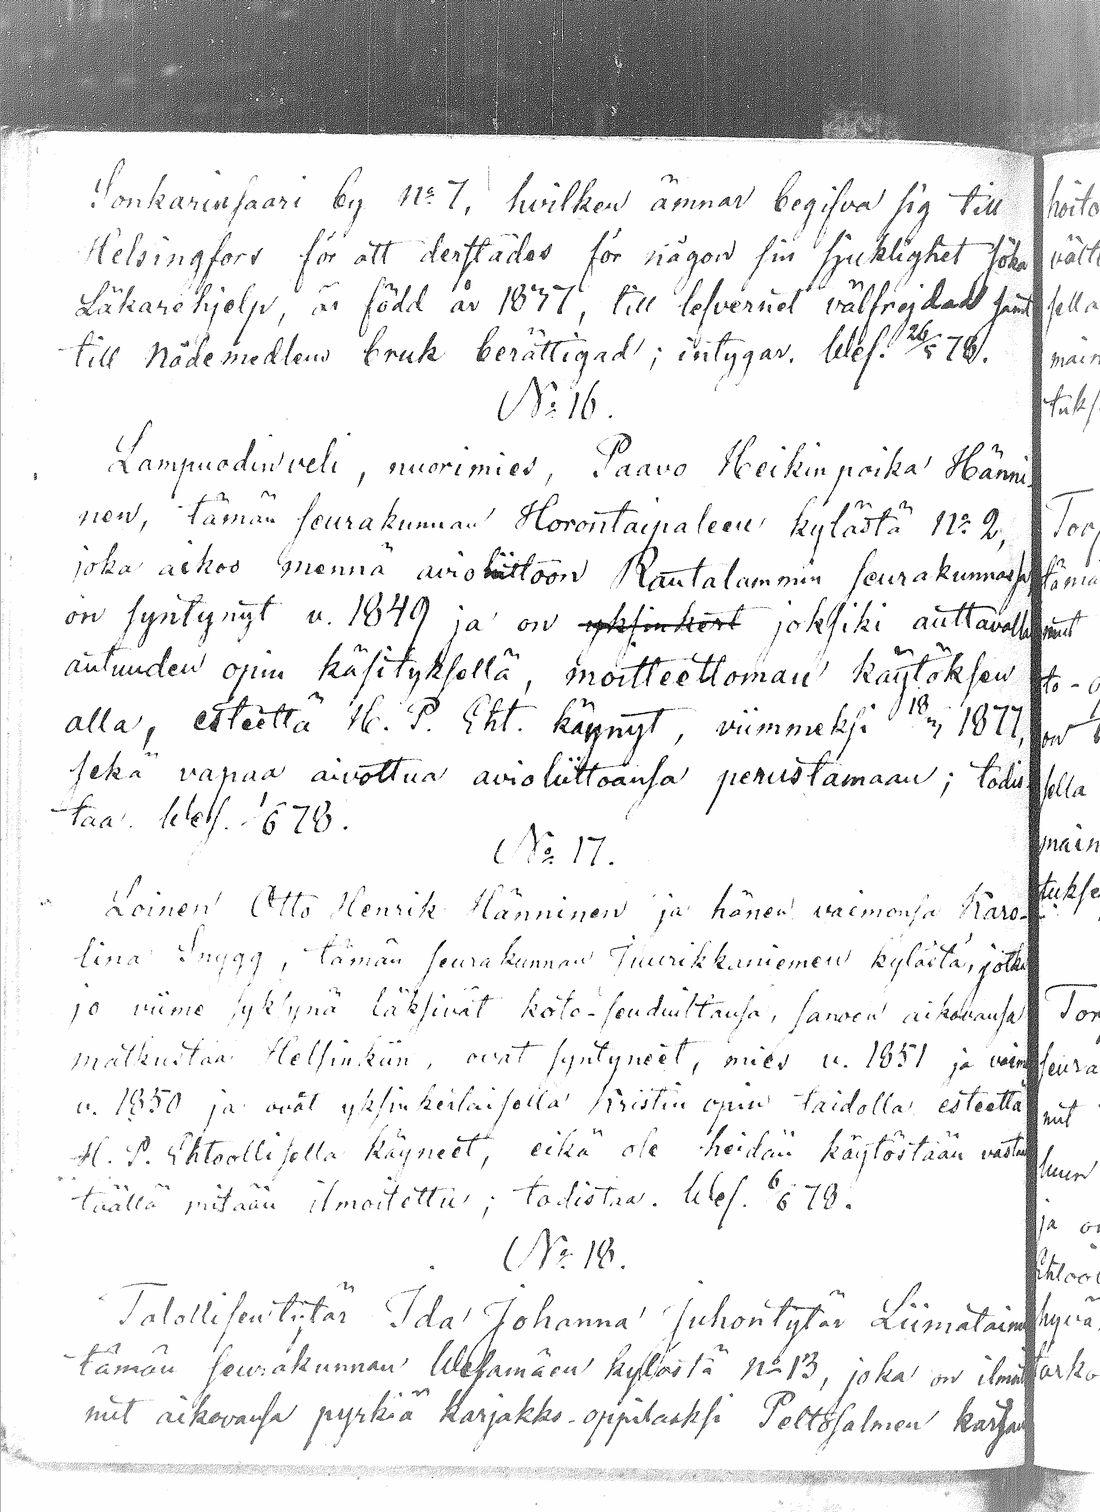 Sonkarinsaari by No 7, hvilken ämnar begifva sig till
Helsingfors för att derstädes för någon sin sjuklighet söka
Läkarehjelp, är född år 1877, till lefvernet välfrejdad samt
till Nådemedlens bruk berättigad; intygar. Wes. 26/5 78.
No 16.
Lampuodinveli, nuorimies, Paavo Heikinpoika Hänni-
nen, tämän seurakunnan Horontaipaleen kylästä No 2,
joka aikoo mennä avioliittoon Rautalammin seurakunnassa
on syntynyt v. 1849 ja on yksinkert joksiki auttavalla
autuuden opin käsityksellä, moitteettoman käytöksen
alla, esteettä H. P. Eht. käynyt, viimmeksi 18/3 1877,
sekä vapaa aivottua avioliittoansa perustamaan; todis-
taa. Wes. 1/6 78.
No 17.
Loinen Otto Henrik Hänninen ja hänen vaimonsa Karo-
lina Snygg, tämän seurakunnan Juurikkaniemen kylästä, jotka
jo viime syksynä läksivät koto-seuduiltansa, sanoen aikovansa
matkustaa Helsinkiin, ovat syntyneet, mies v. 1851 ja vaimo
v. 1850 ja ovat yksinkertaisella Kristin opin taidolla esteettä
H. P. Ehtoollisella käyneet, eikä ole heidän käytöstään vastaan
täällä mitään ilmoitettu; todistaa. Wes. 6/6 78.
No 18.
Talollisentytär Ida Johanna Juhontytär Liimatainen
tämän seurakunnan Wesamäen kylästä No 13, joka on ilmoit
nut aikovansa pyrkiä karjakko-oppilaaksi Peltosalmen karjan